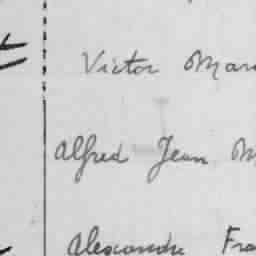 Victor Mar
Alfred Jean M
Alexandre Fra